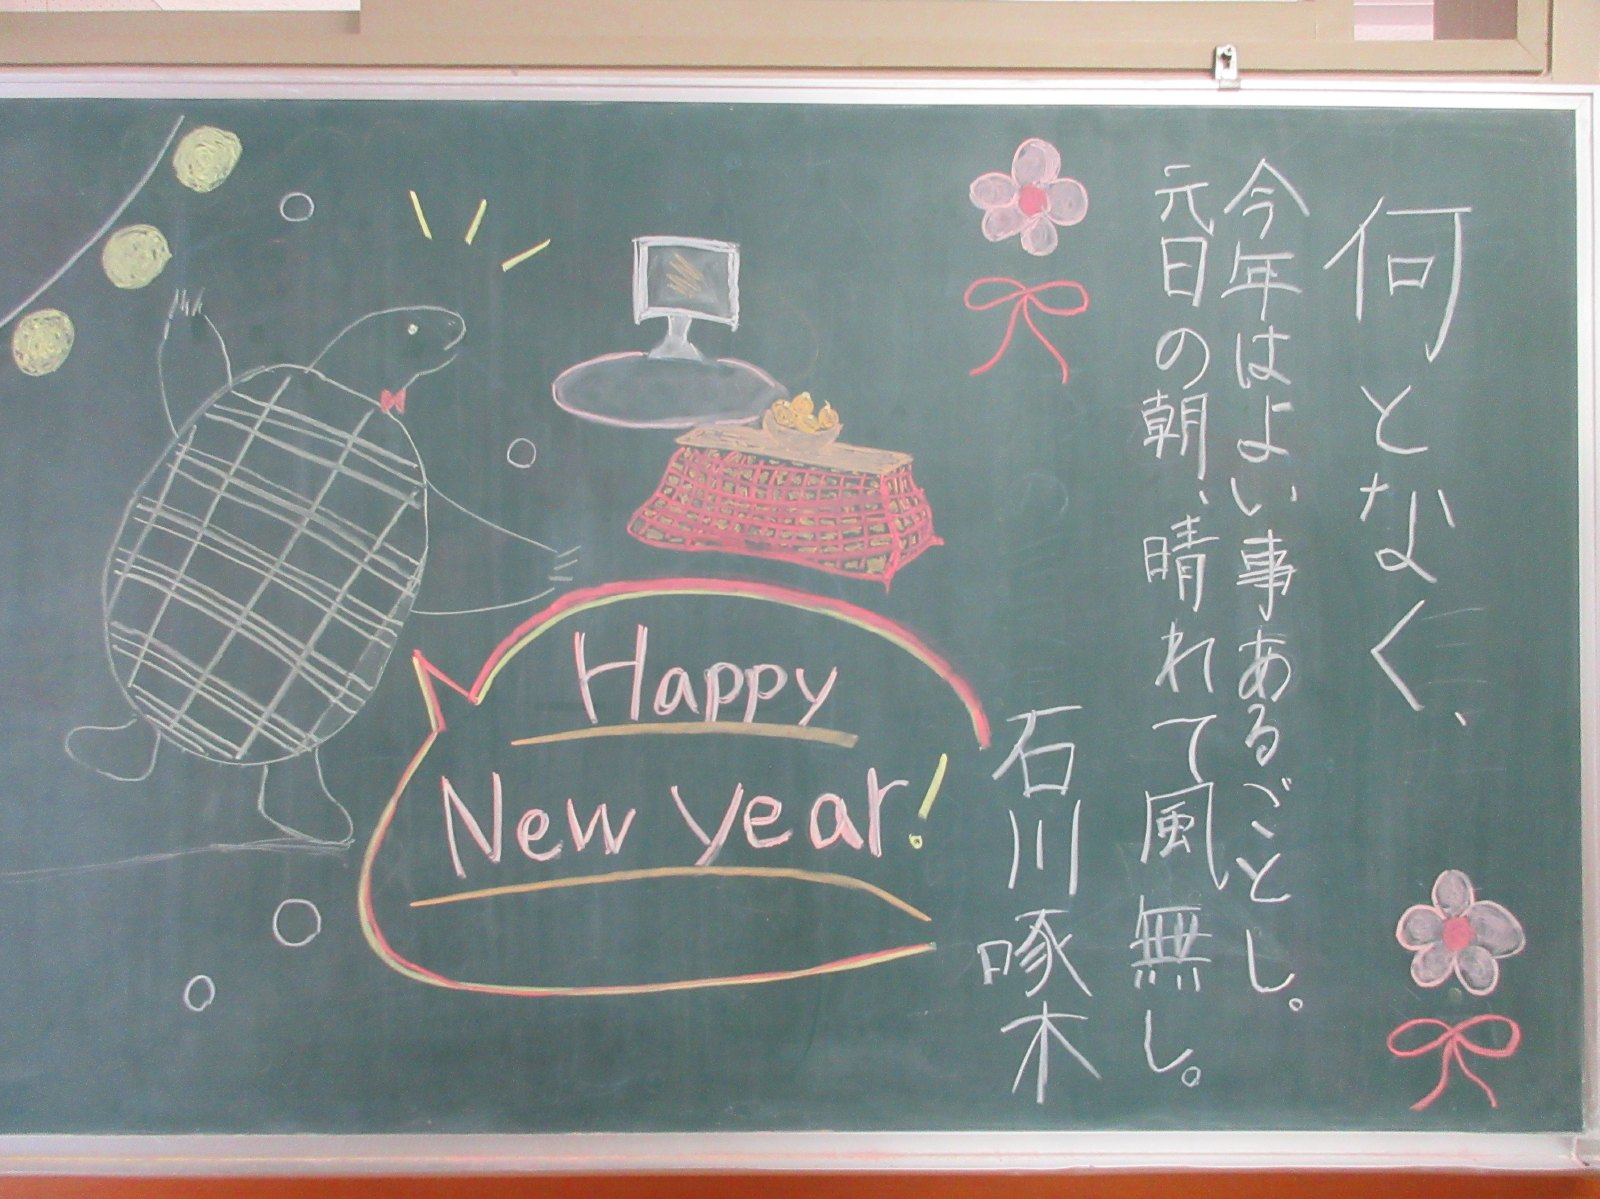 何となく、
今年はよい事あるごとし。
元日の朝、晴れて風無し。
石川啄木
Happy
New year!